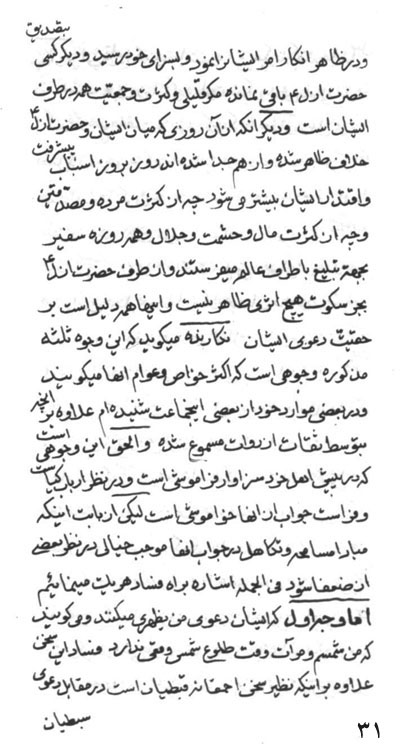 بتصدیق
و در ظاهر انکار امر ایشان نمود و بسزای خود رسید و دیگر کسی
حضرت ازل ۴ باقی نمانده مگر قلیلی و کثرت و جمعیّت همه در طرف
ایشان است و دیگر آنکه از آن روزی که میان ایشان و حضرت ازل ۴
خلاف ظاهر شده و از هم جدا شده اند روز بروز اسباب پیشرفت
و اقتدار ایشان بیشتر می شود چه از کثرت مرده و مصدقین
و چه از کثرت مال و حشمت و جلال و همه روزه سفیر
بجهة تبلیغ باطراف عالم میفرستند و از طرف حضرت ازل ۴
بجز سکوت هیچ اثری ظاهر نیست و اینها همه دلیل است بر
حقیّت دعوی ایشان نگارنده میگوید که این وجوه ثلثه
مذکوره وجوهی است که اکثر خواص و عوام انها میگویند
و در بعضی موارد خود از بعضی اینجماعت شنیده ام علاوه بر آنچه
بتوسط ثقات از روات مسموع شده و الحق این وجوهی است
که در پیش اهل خرد سزاوار فراموشی است و در نظر ارباب کیاست
و فراست جواب از انها خواموشی است لیکن از بابت اینکه
مبادا مسامحه و تکاهل در جواب انها موجب خیالی در نظر بعضی
از ضعفا شود فی الجمله اشاره براه فساد هر یک مینمائیم
اما وجه اول که ایشان دعوی من یظهری میکنند و می گویند
که من شمسم و مرآت وقت طلوع شمس وقعی ندارد فساد این سخن
علاوه بر اینکه نظیر سخن احمقانه قبطیان است در مقابل دعوی
سبطیان
۳۱